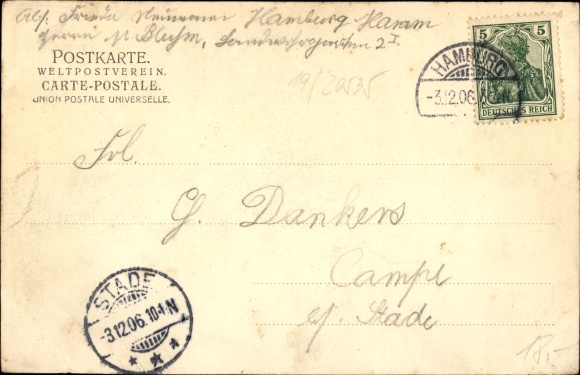 Abs. Frieda Neumann Hamburg Hamm
Herrn H. Bluhm, 2 I.
POSTKARTE.
WELTPOSTVEREIN.
CARTE-POSTALE.
UNION POSTALE UNIVERSELLE.
19/20535
5 5
DEUTSCHES REICH
HAMBURG
-3.12.06. N
Frl.
G. Dankers
Campe
b/ Stade
STADE
-3.12.06. 10-11N
18,-